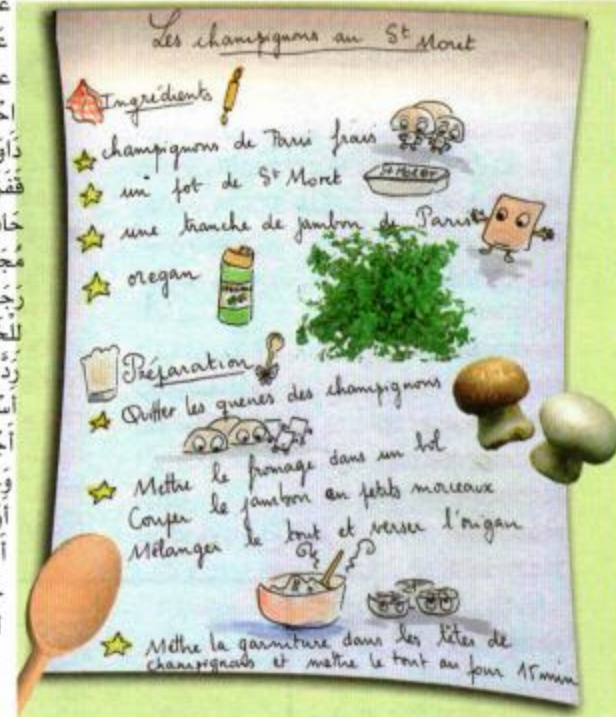 Les champignons au St Moret
Ingrédients
champignons de Paris frais
un pot de St Moret
St MORET
une tranche de jambon de Paris
oregan
Préparation
Quitter les queues des champignons
Mettre le fromage dans un bol
Couper le jambon en petits morceaux
Mélanger le tout et verser l'origan
Mettre la garniture dans les têtes de
champignons et mettre le tout au four 15 min